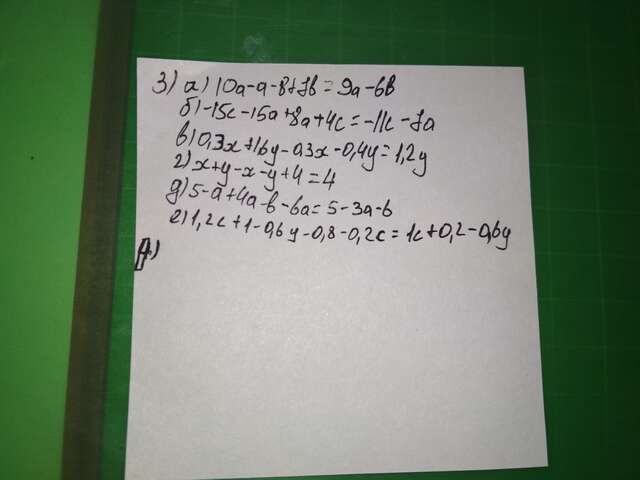 3) а) 10a-a-8+7b=9a-6b
б) -15c-15a+8a+4c=-11c-7a
в) 0,3x+1,6y-0,3x-0,4y=1,2y
г) x+y-x-y+4=4
д) 5-a+4a-b-6a=5-3a-b
е) 1,2c+1-0,6y-0,8-0,2c=1c+0,2-0,6y
4)